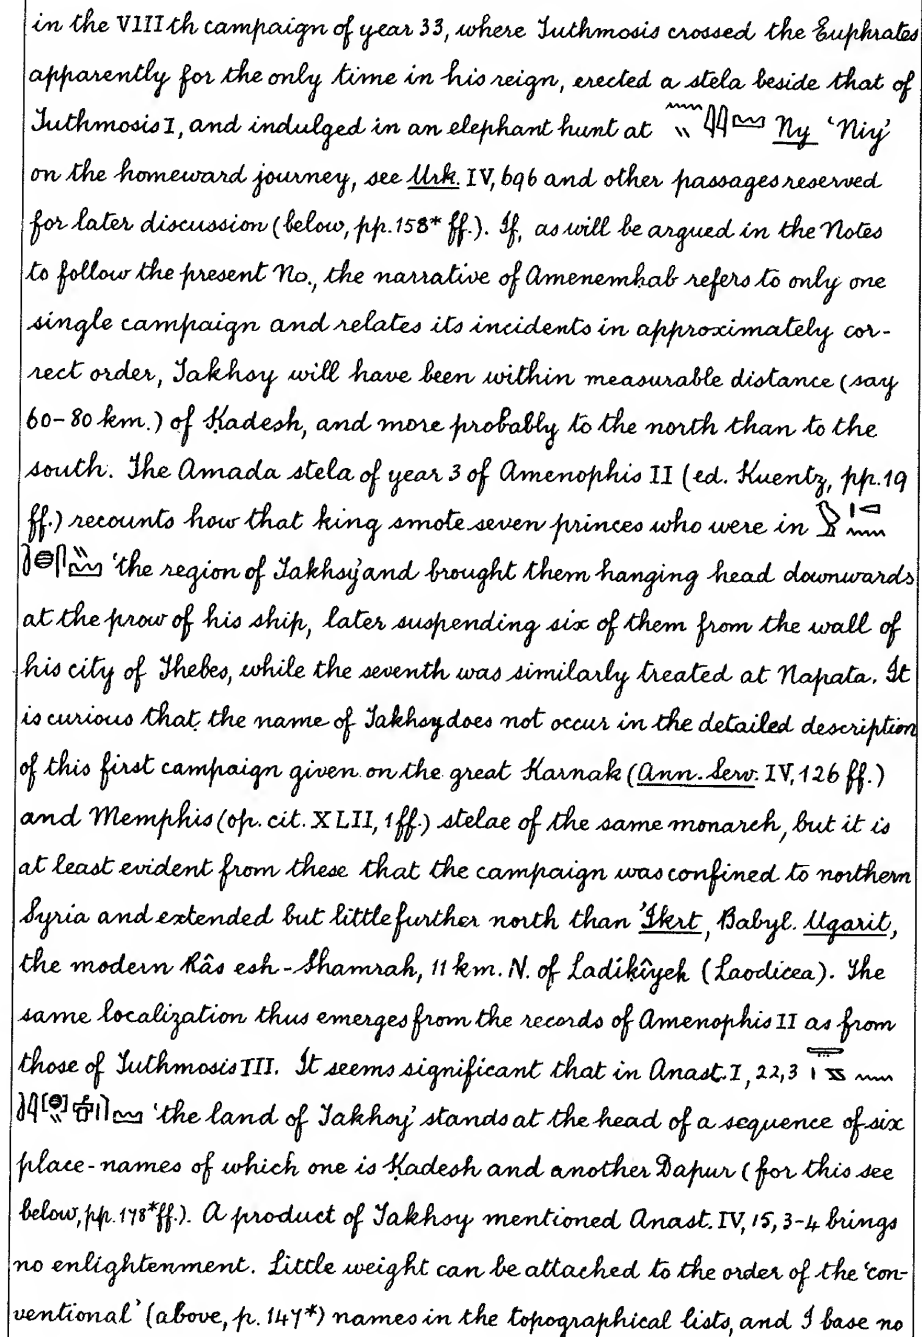 in the VIIIth campaign of year 33, where Tuthmosis crossed the Euphrates
apparently for the only time in his reign, erected a stela beside that of
Tuthmosis I, and indulged in an elephant hunt at Ny 'Niy'
on the homeward journey, see Urk. IV, 696 and other passages reserved
for later discussion (below, pp. 158* ff.). If, as will be argued in the Notes
to follow the present No., the narrative of Amenemhab refers to only one
single campaign and relates its incidents in approximately cor-
rect order, Takhsy will have been within measurable distance (say
60-80 km.) of Ḳadesh, and more probably to the north than to the
south. The Amada stela of year 3 of Amenophis II (ed. Kuentz, pp. 19
ff.) recounts how that king smote seven princes who were in
'the region of Takhsy' and brought them hanging head downwards
at the prow of his ship, later suspending six of them from the wall of
his city of Thebes, while the seventh was similarly treated at Napata. It
is curious that the name of Takhsy does not occur in the detailed description
of this first campaign given on the great Karnak (Ann. Serv. IV, 126 ff.)
and Memphis (op. cit. XLII, 1 ff.) stelae of the same monarch, but it is
at least evident from these that the campaign was confined to northern
Syria and extended but little further north than 'Ikrt, Babyl. Ugarit,
the modern Râs esh-Shamrah, 11 km. N. of Ladiḳîyeh (Laodicea). The
same localization thus emerges from the records of Amenophis II as from
those of Tuthmosis III. It seems significant that in Anast. I, 22,3
'the land of Takhsy' stands at the head of a sequence of six
place-names of which one is Ḳadesh and another Dapur (for this see
below, pp. 178* ff.). A product of Takhsy mentioned Anast. IV, 15, 3-4 brings
no enlightenment. Little weight can be attached to the order of the 'con-
ventional' (above, p. 147*) names in the topographical lists, and I base no